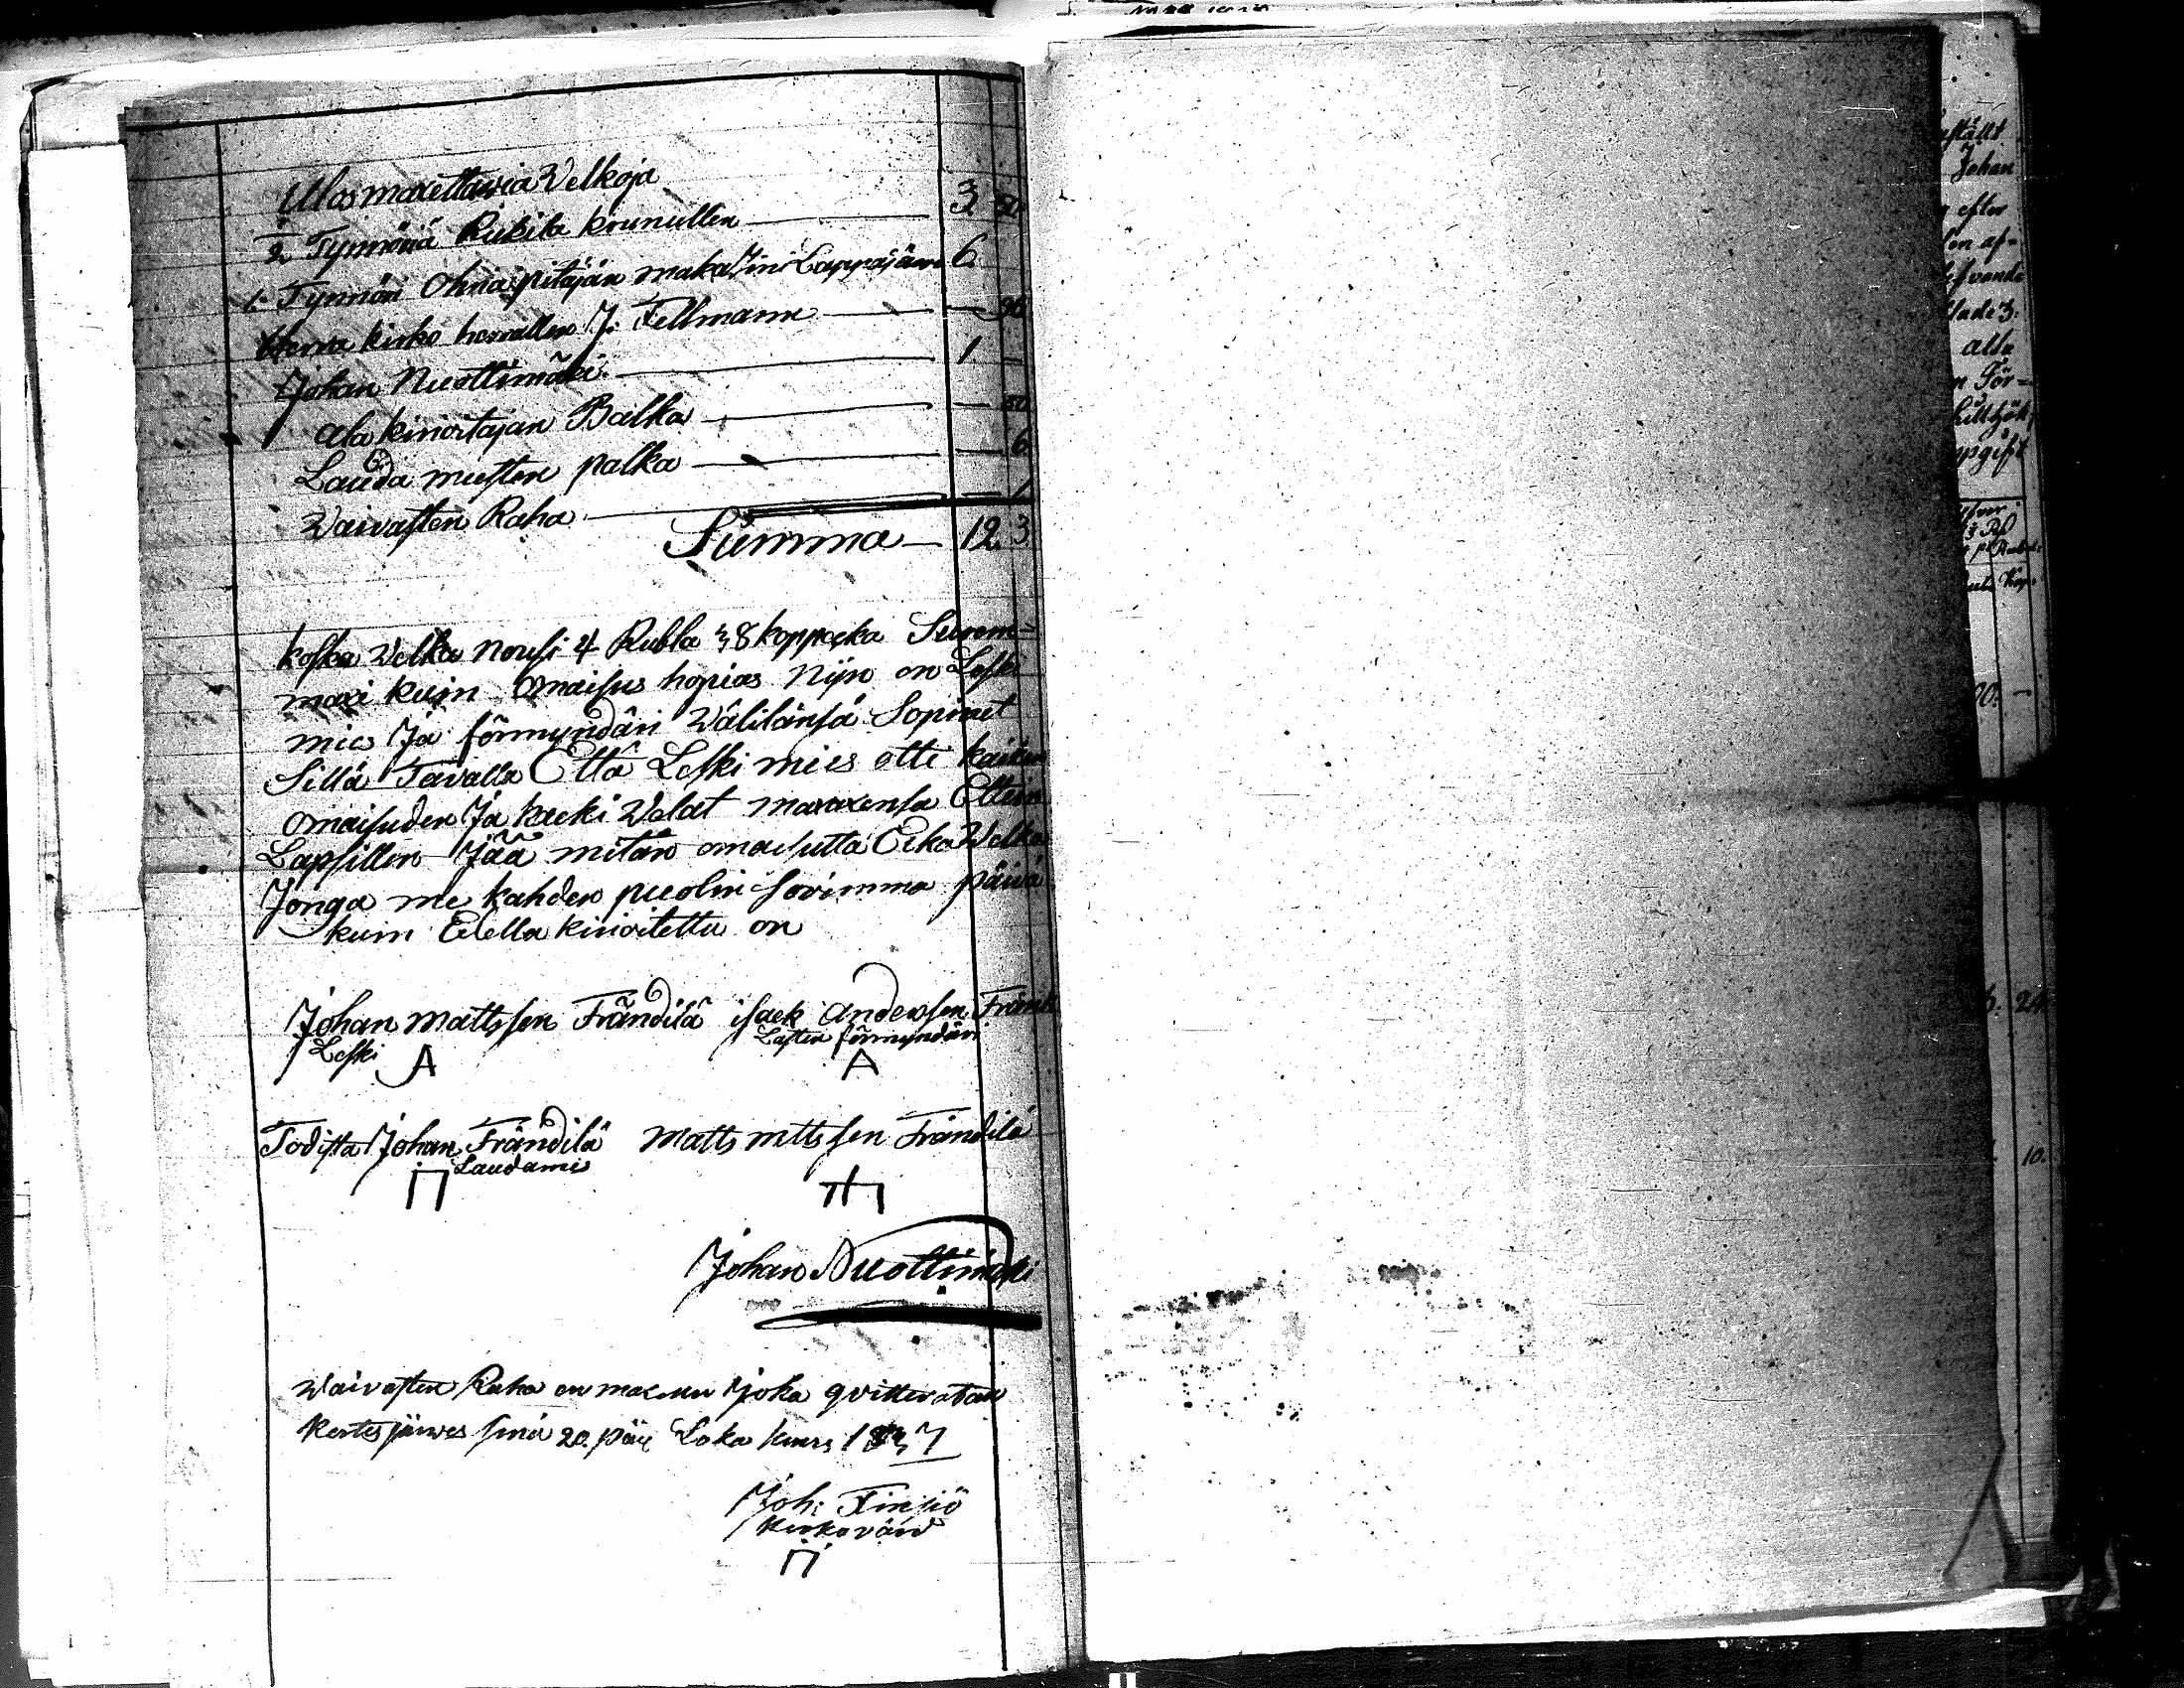 Ulos maxettawia Welkoja
1/2 Tynnöriä Rukita krunullen — 3
1: Tynnöri Ohria pitäjän makasini Lappajärwi 6.
Herra kirko herrallen J: Fellmann — 96
Johan Nuottimäki — 1 —
ala kirioitajan Balka — — 50
Lauda miesten palka — — 6
Waivasten Raha — — 1
Summa — 12. 3
koska Welka nousi 4 Rubla 38 koppecka Surem=
maxi kuin Omaisus hopias Nijn on Leski
mies Ja förmyndäri Wälilänsä Sopinet
Sillä Tavalla Että Leski mies otti kaiken
omaisuden Ja kacki Velat maxaxensa Ettein
Lapsillen Jää mitän omaisutta Eikä Welka
Jonga me kahden puolin Sovimma päivä
kuin Edellä kirioitettu on
Johan Mattssen Frändilä isaek Anderssen Frändi
Leski Lasten förmyndäri
A A
Todista Johan Frändilä Matts mttssen Frändilä
Laudamis
Johan Nuottimäki
Waivasten Raha on maxettu Joka qvitteratan
Kortesjärwes sinä 20. päi Loka kuus 1837
Joh: Finjiö
Kirkovärd
ställt
Johan
efter
en af=
lefvande
lade 3.
alla
n För=
pgift
20. —
24
10.